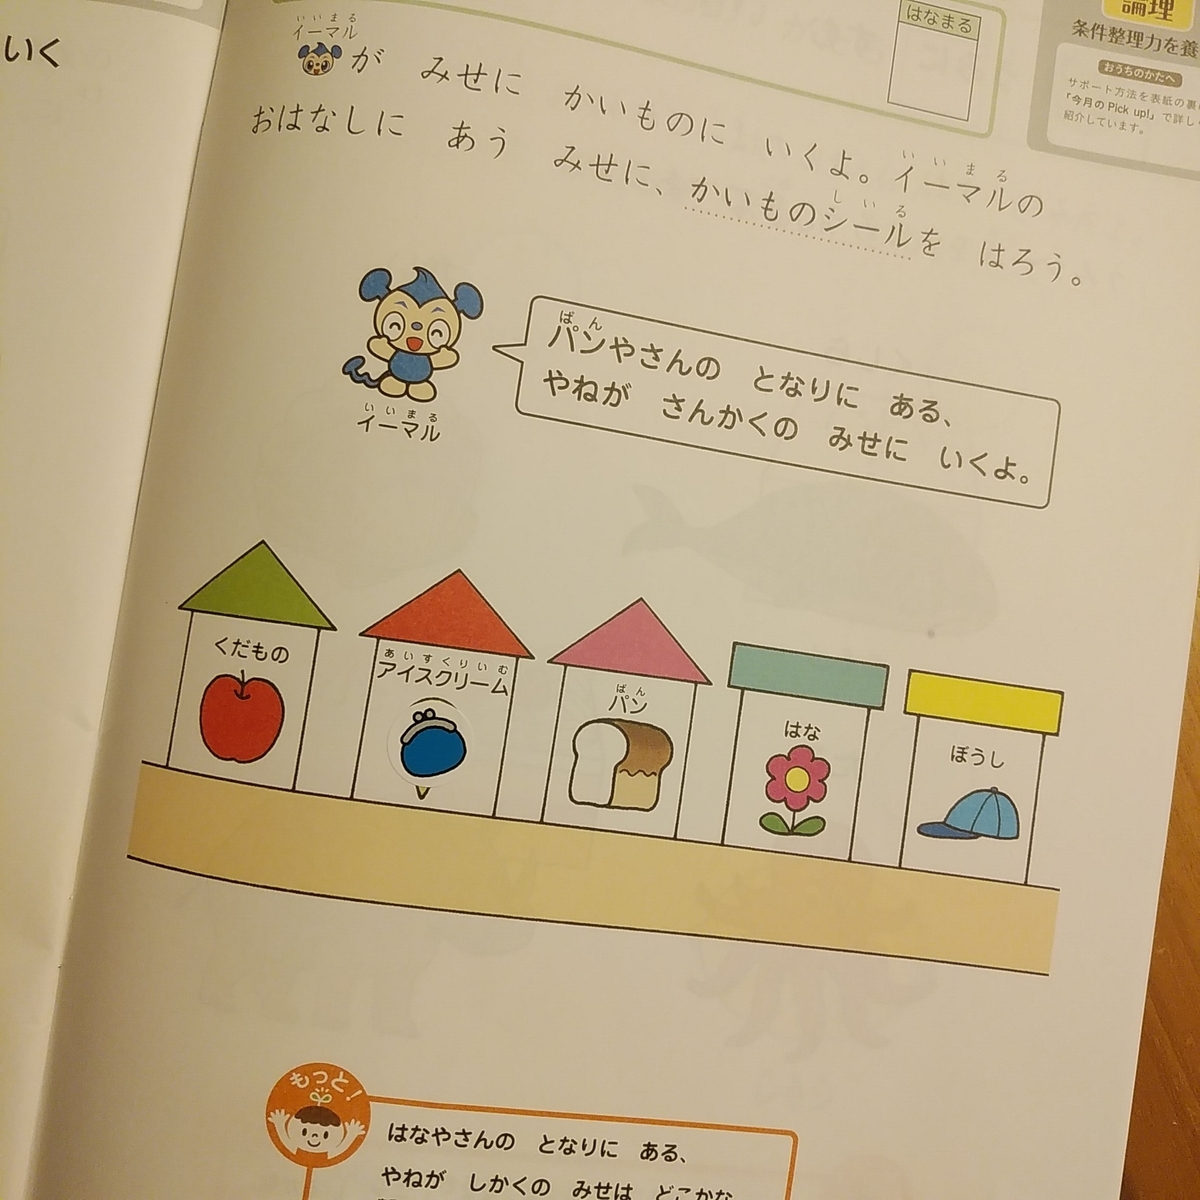 いく
はなまる
論理
条件整理力を養
おうちのかたへ
サポート方法を表紙の裏
「今月のPick up!」で詳し
紹介しています。
いいまる
イーマル
が みせに かいものに いくよ。イーマルの
いいまる
おはなしに あう みせに、かいものシールを はろう。
しいる
いいまる
イーマル
ぱん
パンやさんの となりに ある、
やねが さんかくの みせに いくよ。
くだもの
あいすくりいむ
アイスクリーム
ぱん
パン
はな
ぼうし
もっと!
はなやさんの となりに ある、
やねが しかくの みせは どこかな